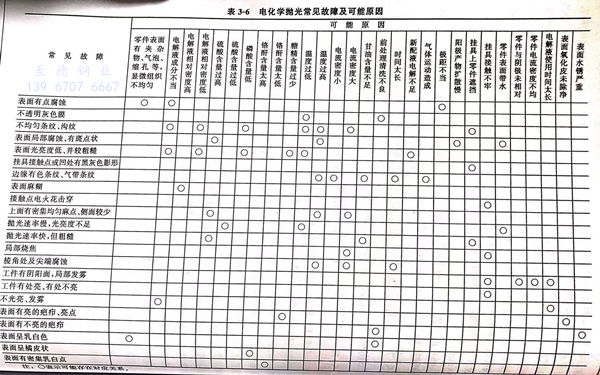 表 3-6 电化学抛光常见故障及可能原因
可能原因
常见故障
零件表面有夹杂物、气泡、缩孔等,显微组织不均匀
电解液成分不当
电解液相对密度高
电解液相对密度低
硫酸含量过高
硫酸含量过低
磷酸含量过高
磷酸含量过低
铬酐含量太高
铬酐含量太低
糖精含量过少
温度过高
温度过低
电流密度小
电流密度大
甘油含量不足
前处理清洗不良
时间太长
新配液电解不足
气体运动造成
极距不当
阳极产物扩散慢
挂具上零件遮挡
挂具接触不牢
零件表面带水
零件与阴极未相对
零件电流密度不均
电解液使用时间太长
表面氧化皮未除净
表面水锈严重
至德钢业
139 6707 6667
表面有点腐蚀
不透明灰色膜
不均匀条纹、沟纹
表面局部腐蚀、有斑点状
表面光亮度低、并较粗糙
挂具接触点或凹处有黑灰色影形
边缘有色条纹、气带条纹
表面麻糊
接触点电火花击穿
上面有密集均匀麻点、侧面较少
抛光速率慢,光亮度不足
抛光速率快,但粗糙
局部烧焦
棱角处及尖端腐蚀
工件有阴阳面,局部发雾
工件有处亮、有处不亮
不光亮、发雾
表面有亮的疤疖、亮点
表面有不亮的疤疖
表面呈乳白色
表面呈橘皮状
表面有密集乳白点
注:○表示可能存在对应关系。